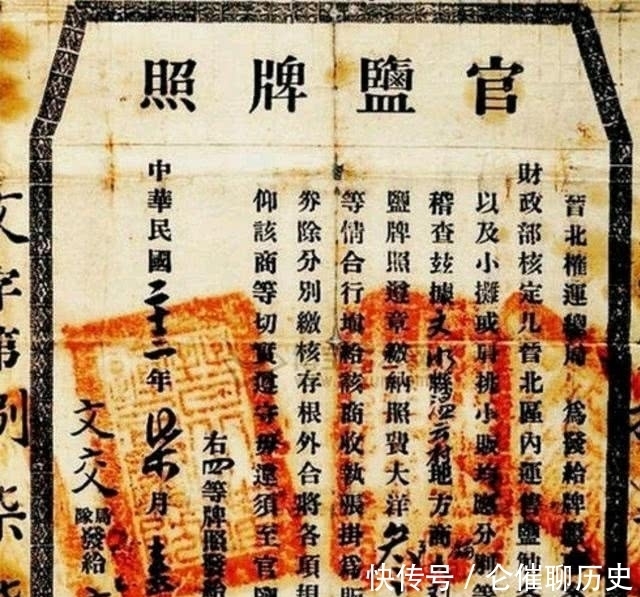 官鹽牌照
晉北榷運總局 為發給牌照
財政部核定凡晉北區內運售鹽觔
以及小攤或肩挑小販均應分別等
稽查茲據文水縣 村地方商
鹽牌照遵章繳納照費大洋
等情合行填給該商收執張掛為販
券除分別繳核存根外合將各項規
仰該商等切實遵守毋違須至官鹽
右四等牌照發給
中華民國二十二年 月
文交
隊局發給
文字第 柒
快传号/仑催聊历史